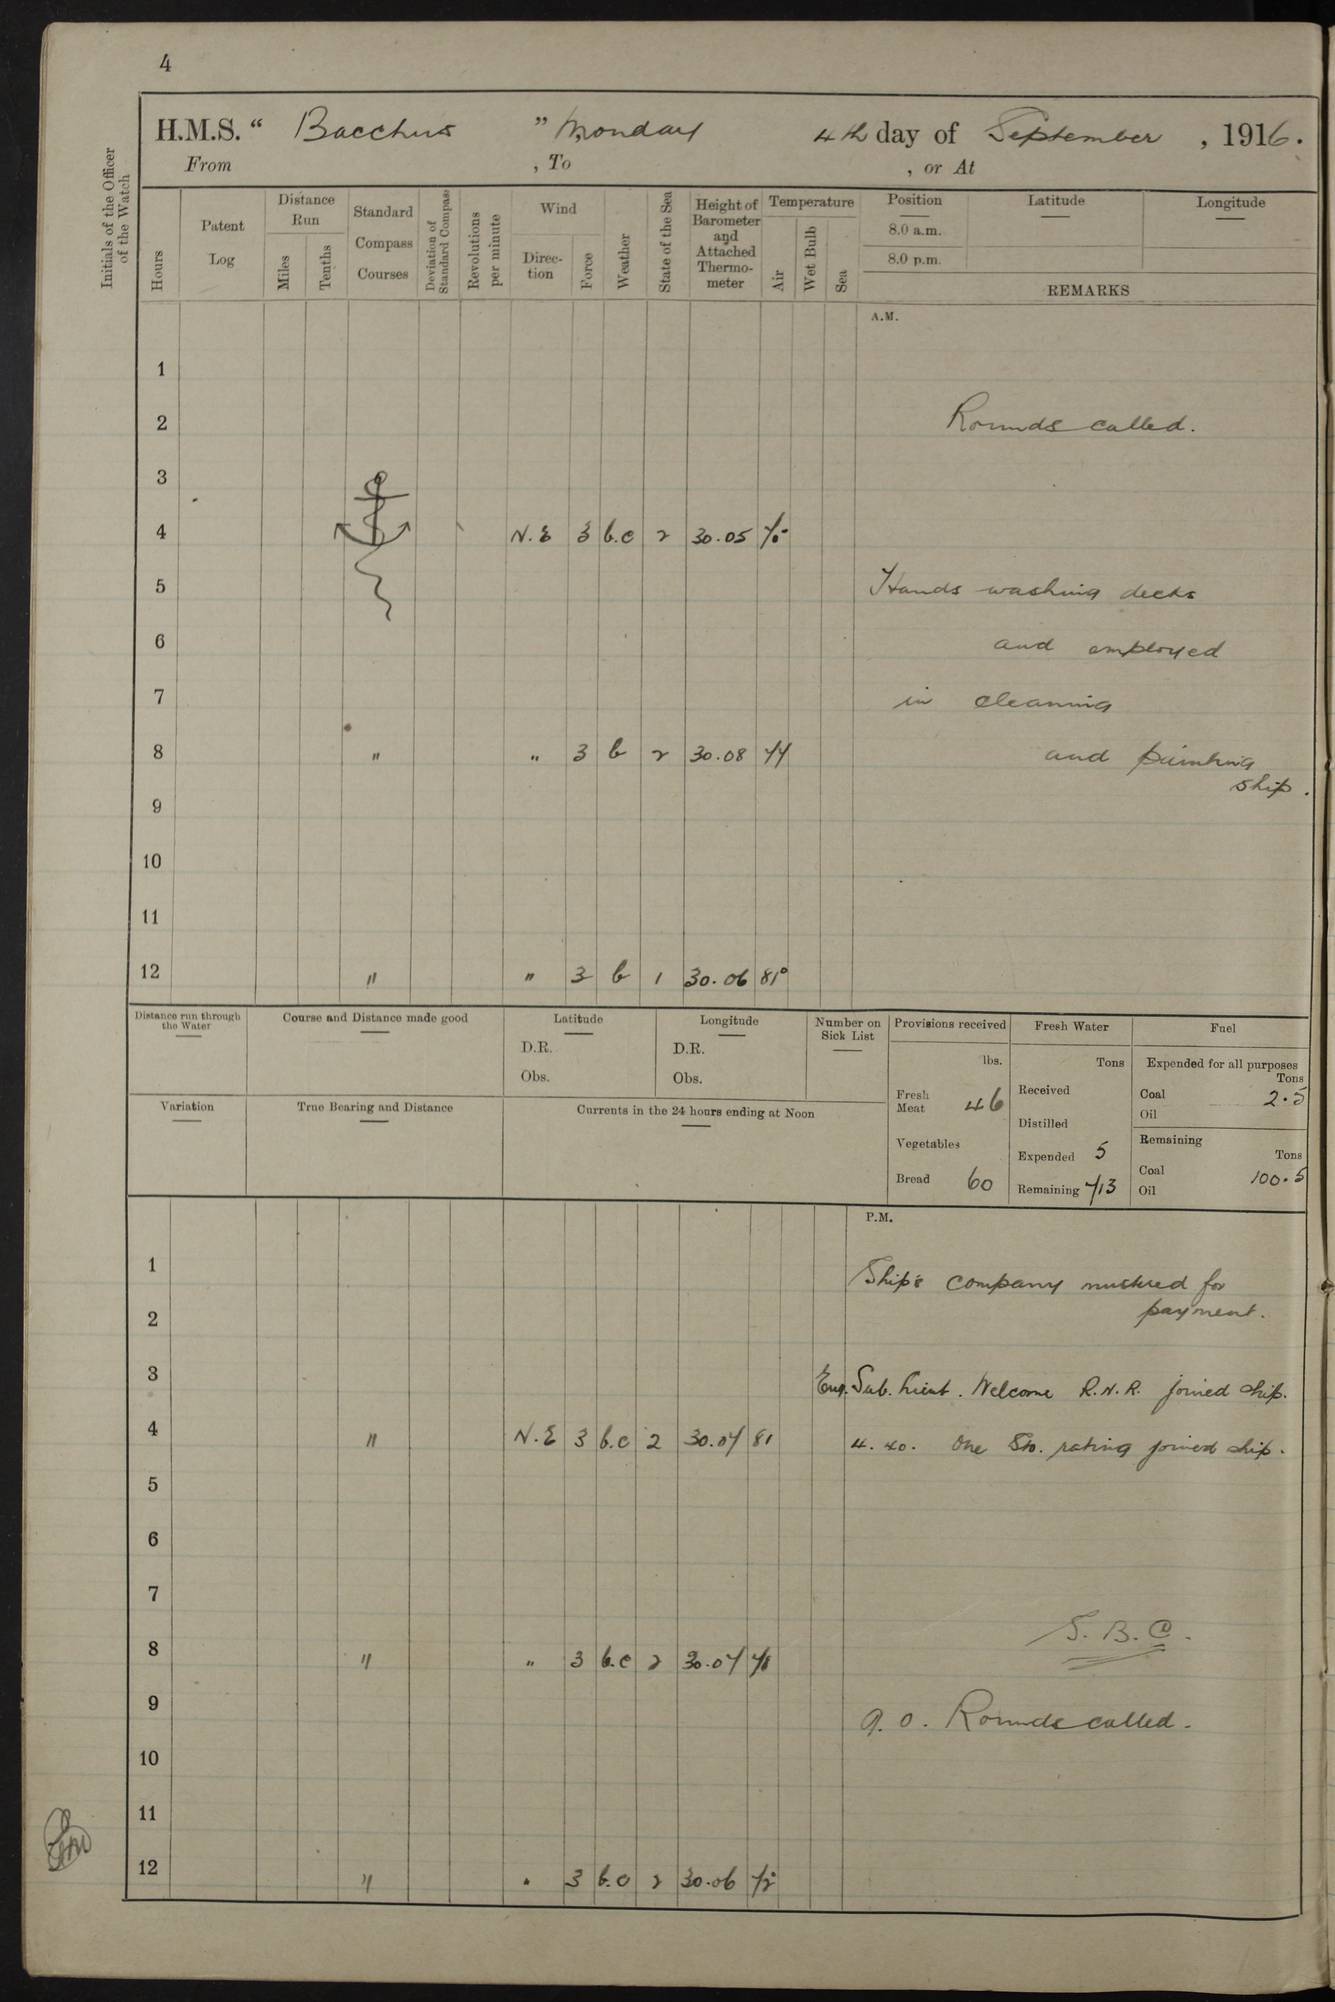 4
H.M.S. “ Bacchus ” Monday 4th day of September , 1916.
From , To , or At
Initials of the Officer of the Watch
Hours
Patent Log
Distance Run
Miles
Tenths
Standard Compass Courses
Deviation of Standard Compass
Revolutions per minute
Wind
Direc-tion
Force
Weather
State of the Sea
Height of Barometer and Attached Thermo-meter
Temperature
Air
Wet Bulb
Sea
Position
8.0 a.m.
8.0 p.m.
Latitude
Longitude
REMARKS
A.M.
1
2 Rounds called.
3
4 N.E 3 b.c 2 30.05
5 Hands washing decks
6 and employed
7 in cleaning
8 " " 3 b 2 30.08 77 and painting
ship.
9
10
11
12 " " 3 b 1 30.06 81°
Distance run through the Water
Course and Distance made good
Latitude
D.R.
Obs.
Longitude
D.R.
Obs.
Number on Sick List
Provisions received
lbs.
Fresh Meat 46
Vegetables
Bread 60
Fresh Water
Tons
Received
Distilled
Expended 5
Remaining 713
Fuel
Expended for all purposes
Tons
Coal 2.5
Oil
Remaining
Tons
Coal 100.5
Oil
Variation
True Bearing and Distance
Currents in the 24 hours ending at Noon
P.M.
1 Ship's company mustered for
2 payment.
3 Eng. Sub. Lieut. Welcome R.N.R. joined ship.
4 " N.E 3 b.c 2 30.07 81 4.40. One Sto. rating joined ship.
5
6
7
S.B.C.
8 " " 3 b.c 2 30.07 78
9 9.0. Rounds called.
10
11
12 " " 3 b.c 2 30.06